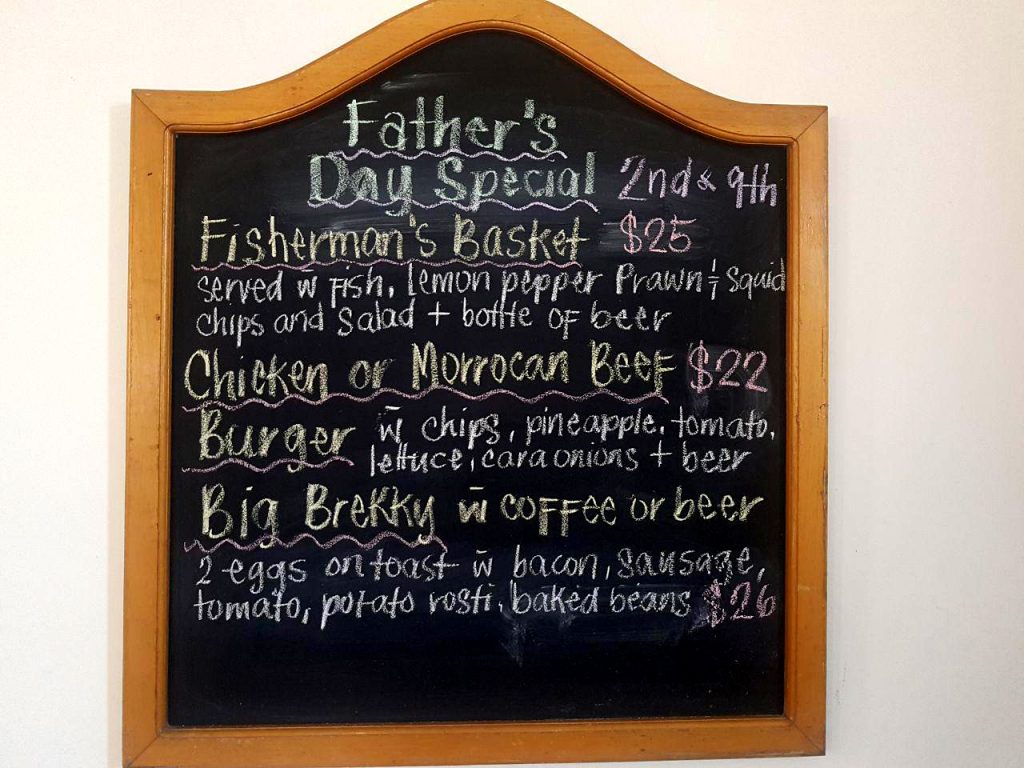 Father's
Day Special 2nd & 9th
Fisherman's Basket $25
served w̄ fish, lemon pepper Prawn & squid
chips and salad + bottle of beer
Chicken or Morrocan Beef $22
Burger w̄ chips, pineapple, tomato,
lettuce, cara onions + beer
Big Brekky w̄ coffee or beer
2 eggs on toast w̄ bacon, sausage,
tomato, potato rosti, baked beans $26